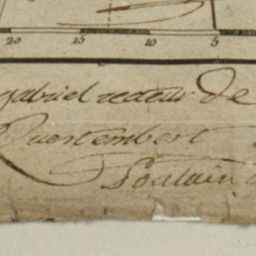 20 15 10 5
gabriel recteur De
Questembert
Poulain